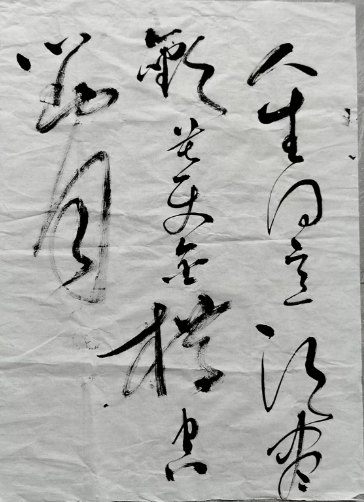 人生得意须尽
欢莫使金樽空
对月